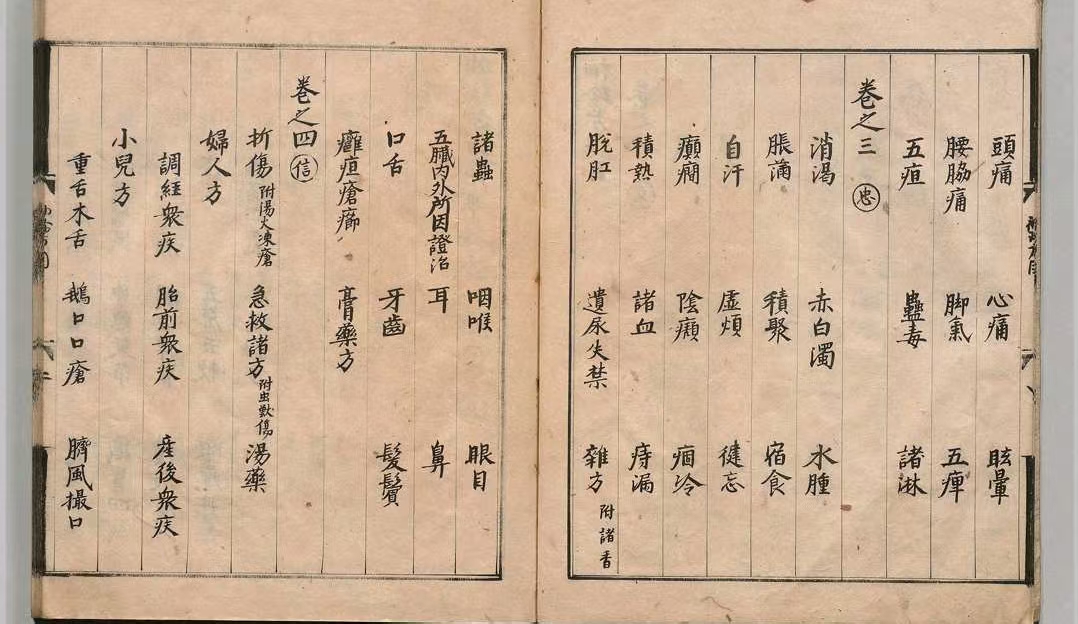 頭痛 心痛 眩暈
腰脇痛 脚氣 五痺
五疸 蠱毒 諸淋
巻之三 忠
消渇 赤白濁 水腫
脹滿 積聚 宿食
自汗 虚煩 健忘
癲癇 陰㿗 痼冷
積熱 諸血 痔漏
脱肛 遺尿失禁 雜方 附諸香
諸蟲 咽喉 眼目
五臓内外所因證治 耳 鼻
口舌 牙齒 髪鬢
癰疽瘡癤 膏藥方
巻之四 信
折傷 附湯火凍瘡 急救諸方 附虫獸傷 湯藥
婦人方
調経衆疾 胎前衆疾 産後衆疾
小兒方
重舌木舌 鵝口口瘡 臍風撮口